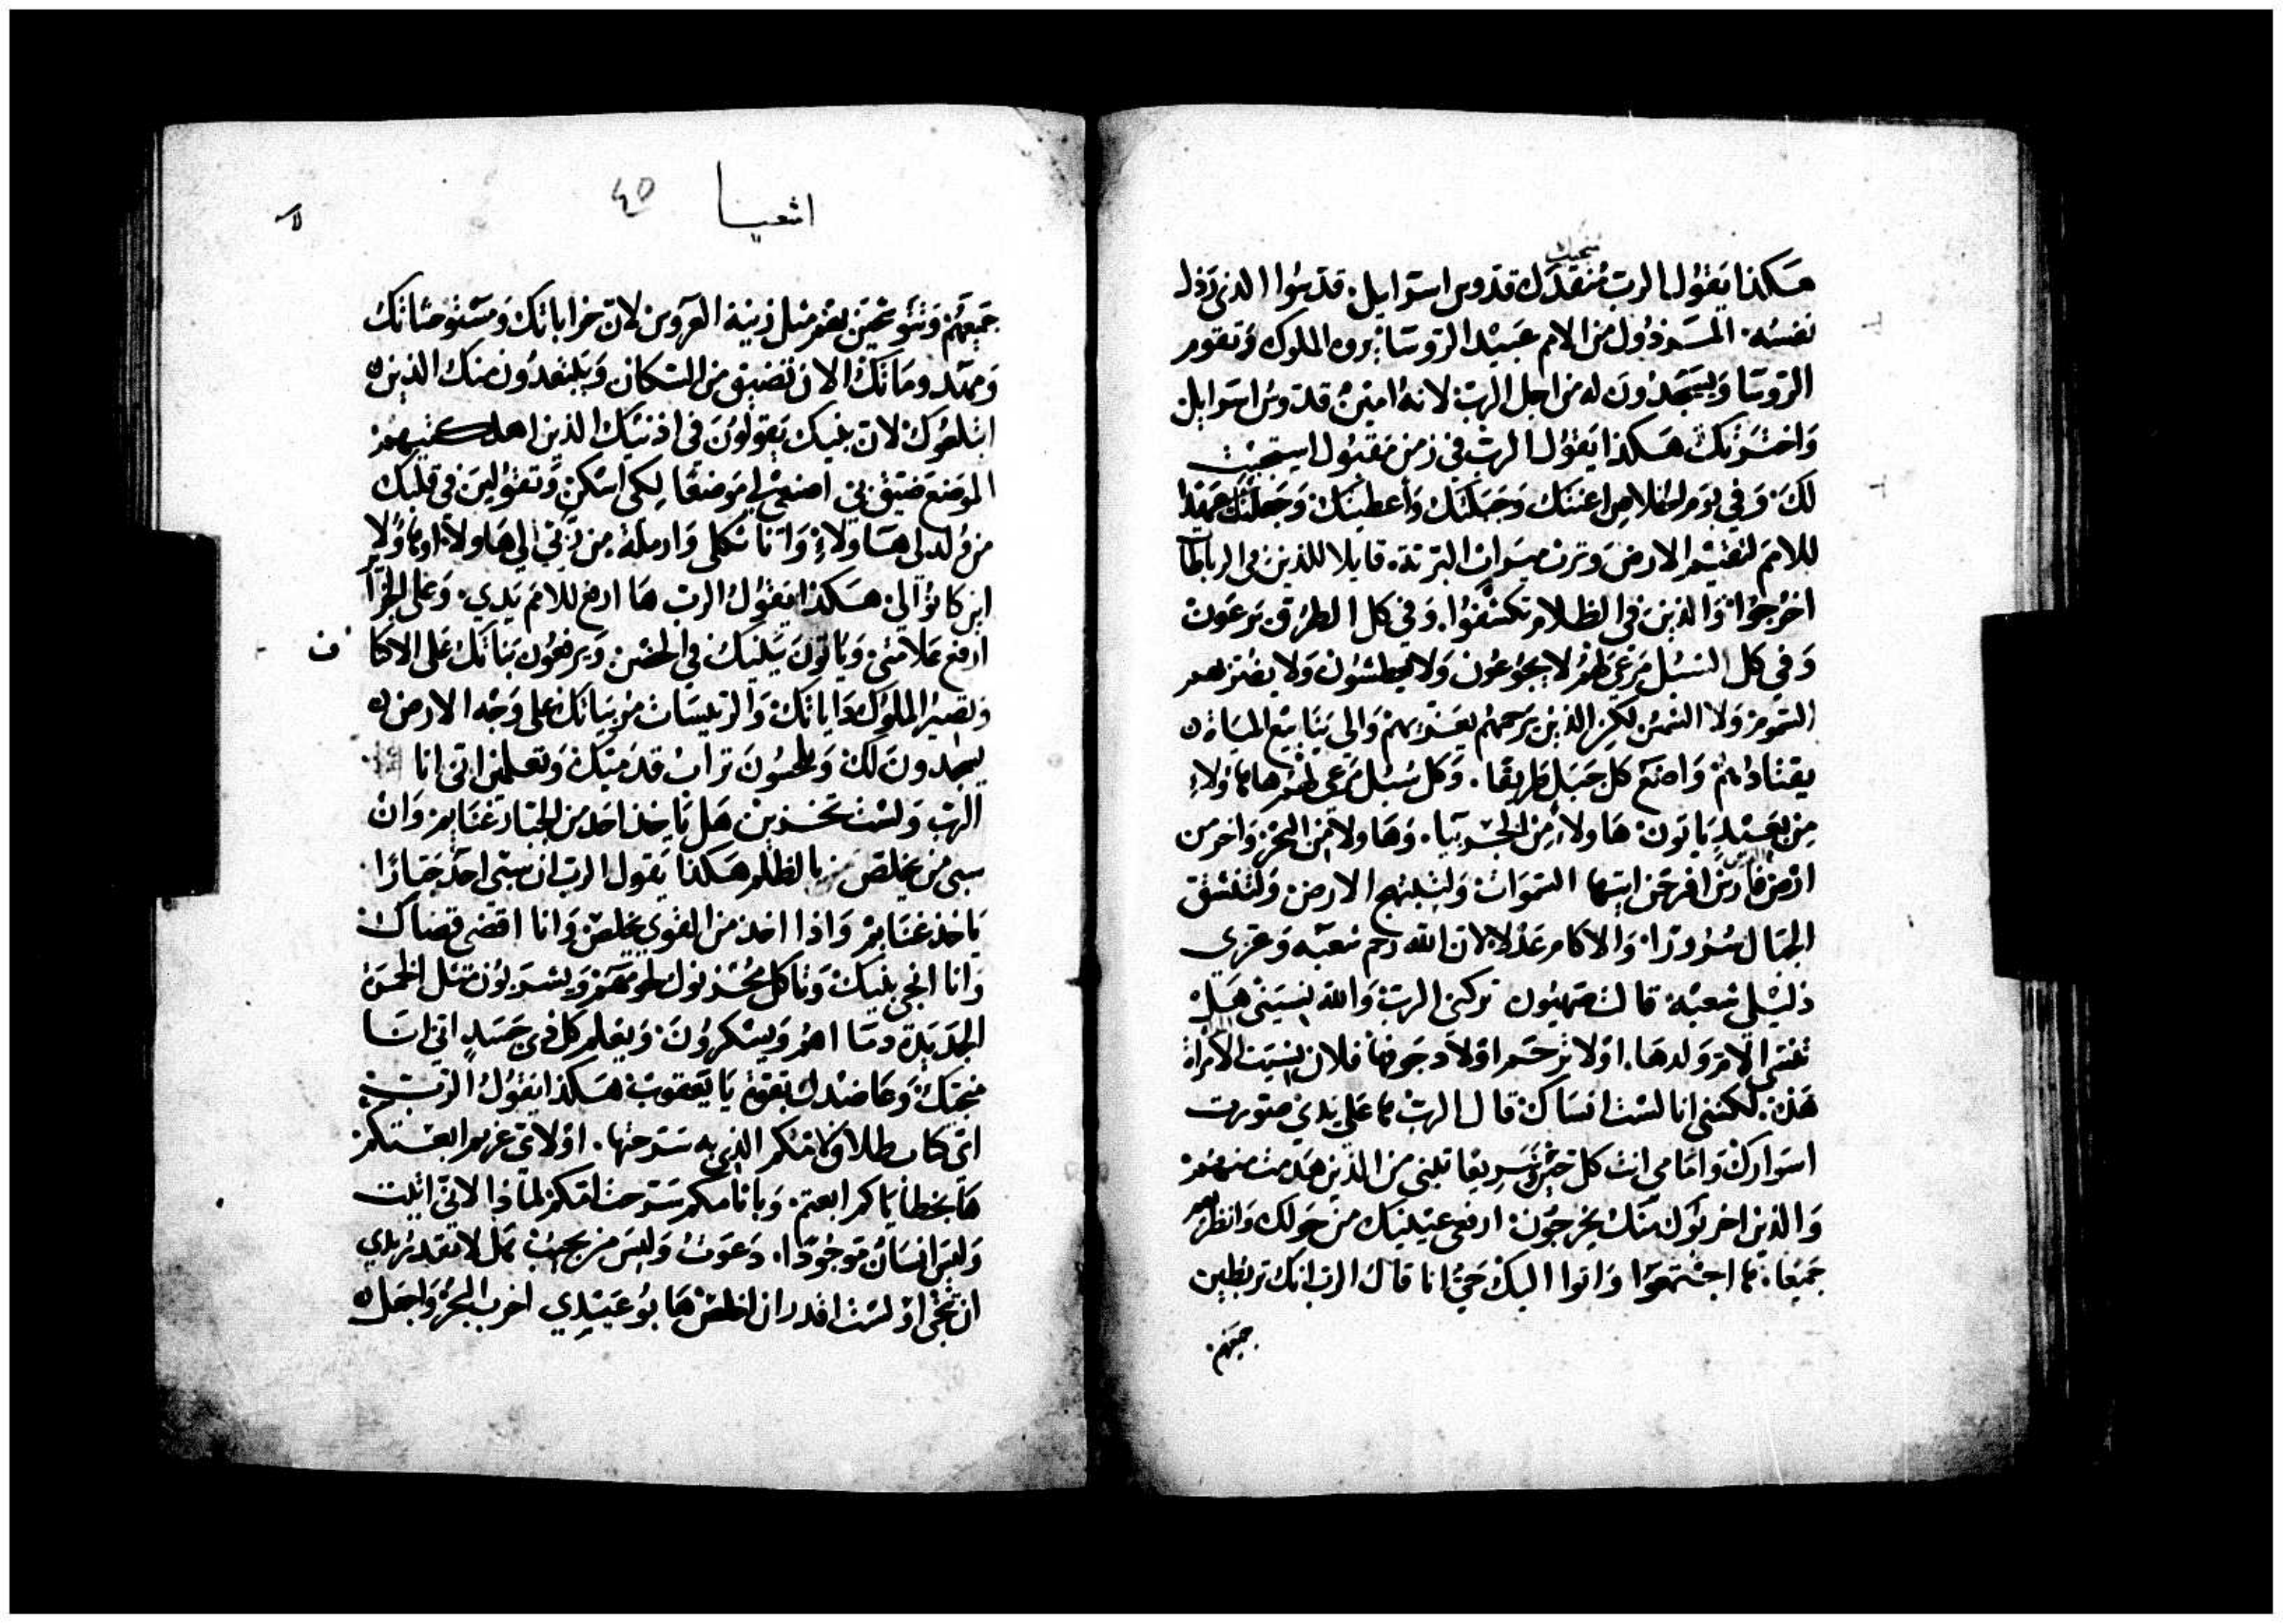 ينجيك
هكذا يقول الرب منقدك قدوس اسرايل. قدسوا الذي رذل
نفسه. المرذول من الامم عبيد الروسا يروه الملوك وتقوم
الروسا ويسجدون له من اجل الرب لانه امين قدوس اسرايل
واخترتك هكذا يقول الرب في زمن مقبول استجبت
لك. وفي يوم الخلاص اعنتك وجبلتك وأعطيتك وجعلتك عهدا
للامم لتقيم الارض وترث ميراث البرية. قايلا للذين في الرباطات
اخرجوا والذين في الظلام تكشفوا. وفي كل الطرق يرعون
وفي كل السبل مرعى لهم لا يجوعون ولا يعطشون ولا يضربهم
السموم ولا الشمس لكن الذي يرحمهم يعزيهم والى ينابيع المياه
يقتادهم واصنع كل جبل طريقا. وكل سبل مرعى لهم ها هاولاء
من بعيد ياتون هاولاء من الجربيا. وهاولا من البحر واخر من
ارض فارس افرحن ايتها السموات ولتبتهج الارض ولتفشق
الجبال سرورا والاكام عدلا لان الله رحم شعبه وعزى
ذليلي شعبه قالت صهيون تركني الرب والله نسيني هل
تنسى الام ولدها. اولا ترحم اولاد جوفها فلان نسيت الامراة
هذه. لكنني انا لست انساك قال الرب ها على يدي صورت
اسوارك وامامي انت كل حين وسريعا تبني من الذين هدمت منهم
والذين اخربوك منك يخرجون ارفعي عينيك من حولك وانظريهم
جميعا. ها اجتمعوا واتوا اليك حي انا قال الرب انك تربطين
جميعهم.
اشعيا
40
جميعهم وتتوشحين بهم مثل زينة العروس لان خراباتك ومستوحشاتك
ومهدوماتك الان تضيق من السكان ويبتعدون منك الذين
ابتلعوك لان بنيك يقولون في اذنيك الذين اهلكتيهم
الموضع ضيق بي اصنعي لي موضعا لكي اسكن وتقولين في قلبك
من ولد لي هاولاء وانا ثكلى وارملة من ربى لي هاولا
اين كانوا لي. هكذا يقول الرب ها ارفع للامم يدي. وعلى الجزاير
ارفع علامتي وياتون ببنيك في الحضن ويرفعون بناتك على الاكتاف
وتصير الملوك داياتك والرييسات مربياتك على وجه الارض
يسجدون لك ويلحسون تراب قدميك وتعلمين اني انا
الرب ولست تخزين هل ياخذ احد من الجبار غنايم وان
سبى من يخلص بالظلم هكذا يقول الرب ان سبى احد جبارا
ياخذ غنايم واذا اخذ من القوي يخلص وانا اقضي قضاك
وانا انجي بنيك وياكل محزنوك لحومهم ويشربون مثل الخمر
الجديدة دماهم ويسكرون. ويعلم كل ذي جسد اني انا
منجيك وعاضدك بقوة يا يعقوب هكذا يقول الرب
اي كتاب طلاق امكم الذي به سرحتها. او لاي غريم ابعتكم
ها بخطاياكم ابعتم. وباثامكم سرحت امكم لماذا لاني اتيت
وليس انسان موجودا. دعوت وليس من يجيب هل لا تقدر يدي
ان تنجي او لست اقدر ان اخلص ها بوعيدي اخرب البحر واجعل